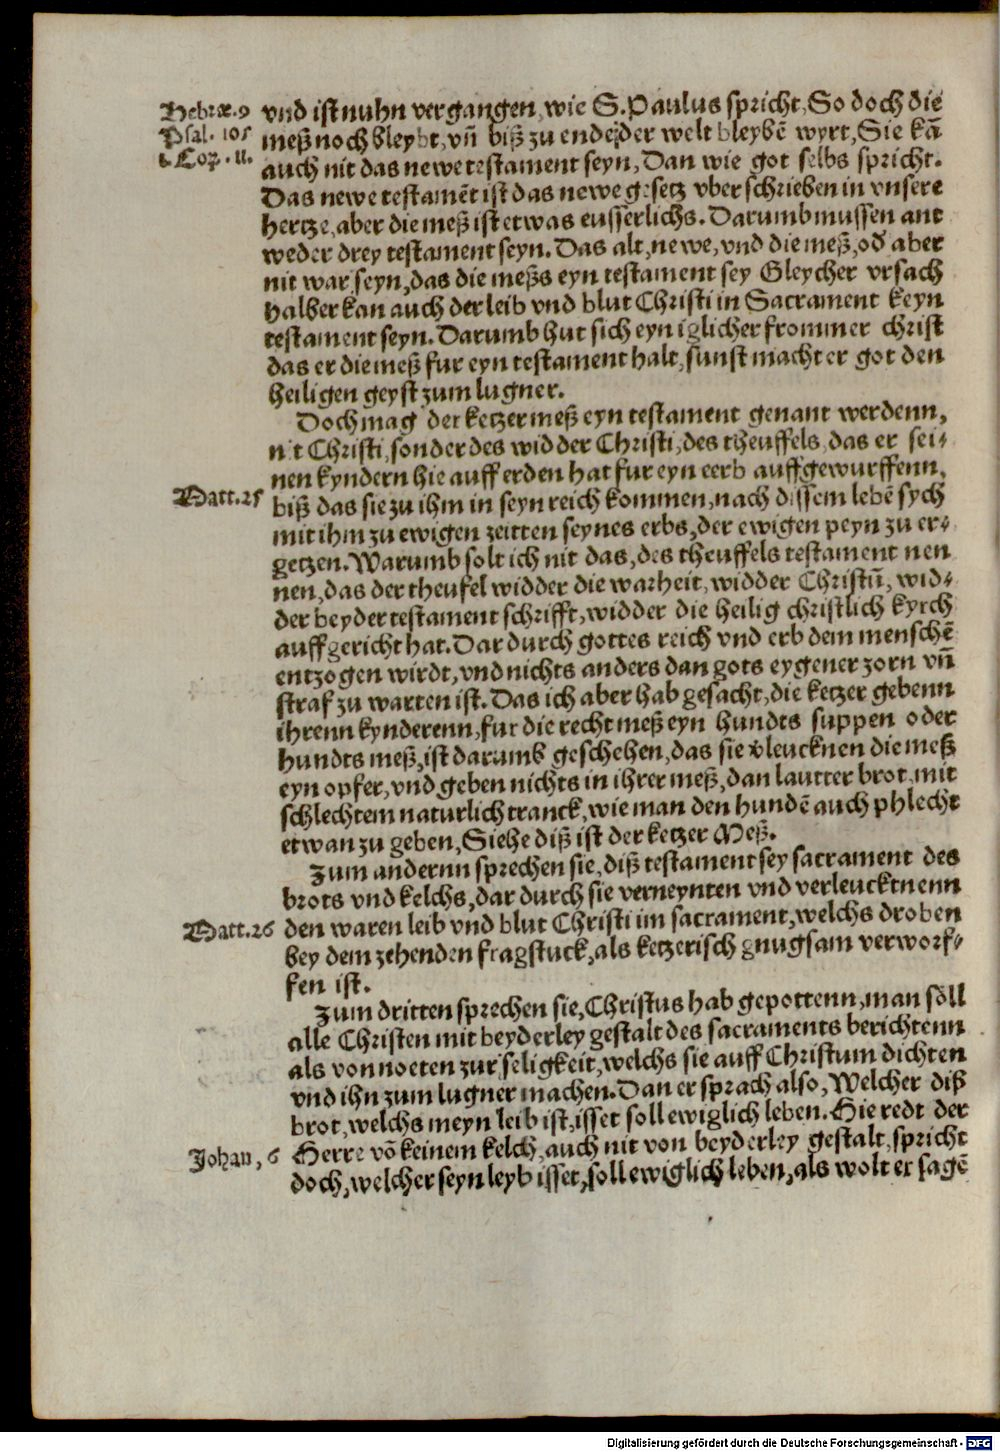 Hebræ.9 vnd ist nuhn vergangen, wie S. Paulus spricht, So doch die
Psal. 105 meß noch bleybt, vñ biß zu ende der welt bleybẽ wyrt, Sie kã
1. Coꝛ. 11. auch nit das newe testament seyn, Dan wie got selbs spricht.
Das newe testamẽt ist das newe gesetz vberschrieben in vnsere
hertze, aber die meß ist etwas eusserlichs. Darumb mussen ant
weder drey testament seyn. Das alt, newe, vnd die meß, od aber
nit war seyn, das die meßs eyn testament sey Gleycher vrsach
halber kan auch der leib vnd blut Christi in Sacrament keyn
testament seyn. Darumb hut sich eyn iglicher frommer christ
das er die meß fur eyn testament halt, sunst macht er got den
heiligen geyst zum lugner.
Doch mag der ketzer meß eyn testament genant werdenn,
nit Christi, sonder des widder Christi, des theuffels, das er sei⸗
nen kyndern hie auff erden hat fur eyn eerb auffgewurffenn,
Matt. 25 biß das sie zu ihm in seyn reich kommen, nach dissem lebẽ sych
mit ihm zu ewigen zeitten seynes erbs, der ewigen peyn zu er⸗
getzen. Warumb solt ich nit das, des theuffels testament nen
nen, das der theufel widder die warheit, widder Christũ, wid⸗
der beyder testament schrifft, widder die heilig christlich kyrch
auffgericht hat. Dar durch gottes reich vnd erb dem menschẽ
entzogen wirdt, vnd nichts anders dan gots eygener zorn vñ
straf zu warten ist. Das ich aber hab gesacht, die ketzer gebenn
ihrenn kynderenn, fur die recht meß eyn hundts suppen oder
hundts meß, ist darumb geschehen, das sie v̈leucknen die meß
eyn opfer, vnd geben nichts in ihrer meß, dan lautter brot, mit
schlechtem naturlich tranck, wie man den hundẽ auch phlecht
etwan zu geben, Siehe diß ist der ketzer Meß.
Zum andernn sprechen sie, diß testament sey sacrament des
brots vnd kelchs, dar durch sie verneynten vnd verleucktnenn
Matt. 26 den waren leib vnd blut Christi im sacrament, welchs droben
bey dem zehenden fragstuck, als ketzerisch gnugsam verworf⸗
fen ist.
Zum dritten sprechen sie, Christus hab gepottenn, man soll
alle Christen mit beyderley gestalt des sacraments berichtenn
als von noeten zur seligkeit, welchs sie auff Christum dichten
vnd ihn zum lugner machen. Dan er sprach also, Welcher diß
brot, welchs meyn leib ist, isset soll ewiglich leben. Hie redt der
Johan, 6 Herre võ keinem kelch, auch nit von beyderley gestalt, spricht
doch, welcher seyn leyb isset, soll ewiglich leben, als wolt er sagẽ
Digitalisierung gefördert durch die Deutsche Forschungsgemeinschaft - DFG